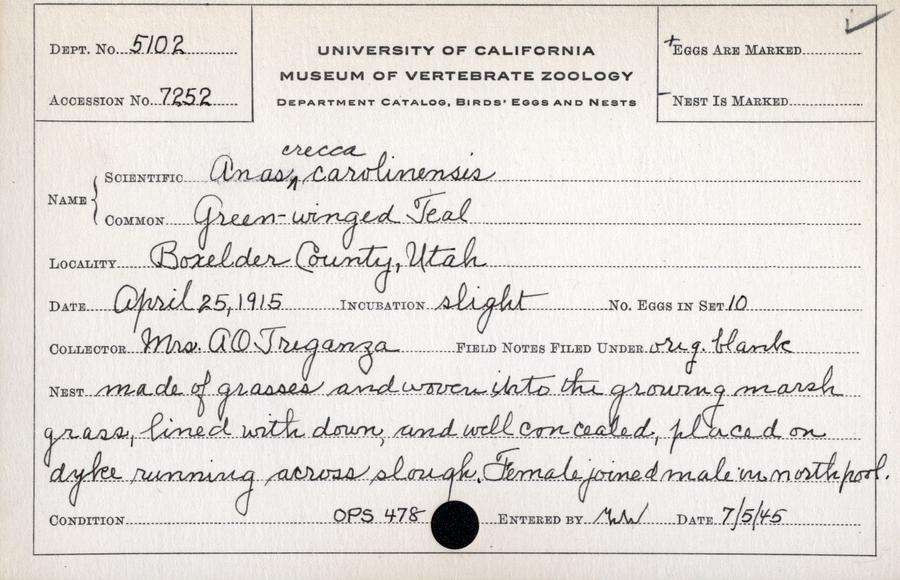 Dept. No. 5102
Accession No. 7252
UNIVERSITY OF CALIFORNIA
MUSEUM OF VERTEBRATE ZOOLOGY
Department Catalog, Birds' Eggs and Nests
+Eggs Are Marked
-Nest Is Marked
Name
Scientific Anas crecca carolinensis
Common Green-winged Teal
Locality Boxelder County, Utah
Date April 25, 1915 Incubation slight No. Eggs in Set 10
Collector Mrs. A O. Treganza Field Notes Filed Under orig. blank
Nest made of grasses and woven into the growing marsh
grass, lined with down, and well concealed, placed on
dyke running across slough. Female joined male in north pool.
Condition OPS 478 Entered by Date 7/5/45